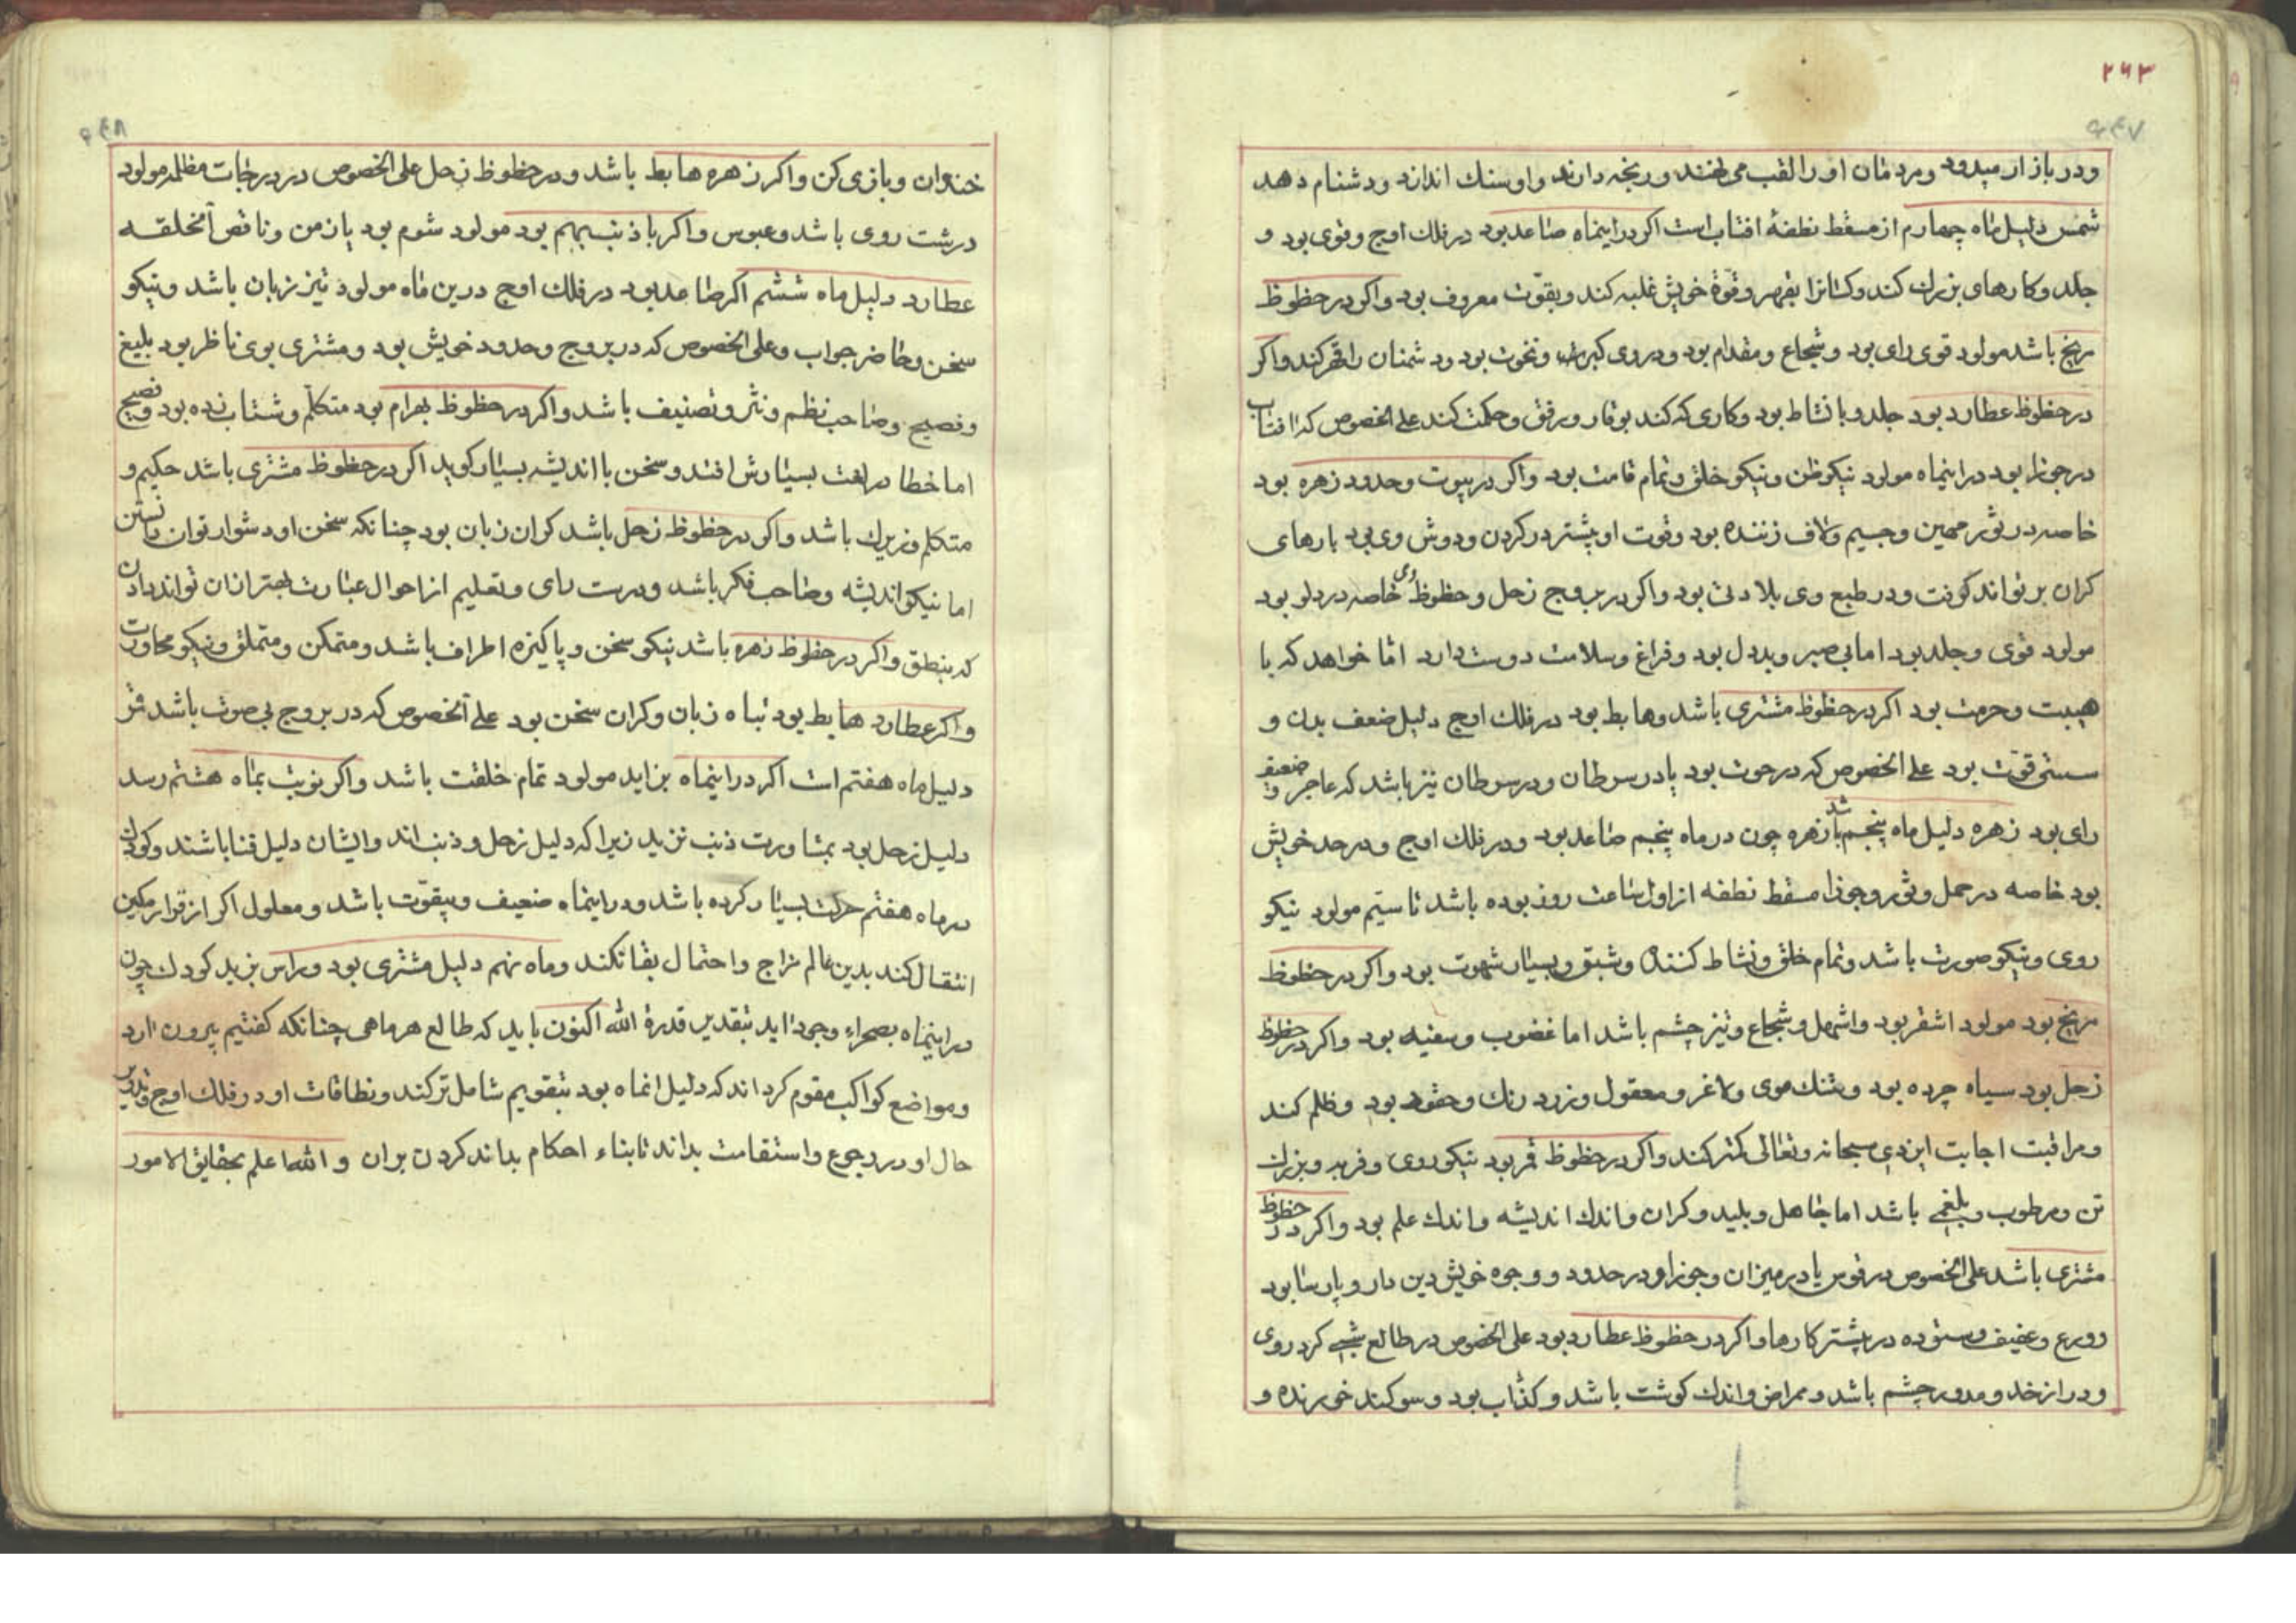 ۲۶۳
ودر بازار میدود ومردمان او را لقب می نهند ورنجه دارند واو سنك اندازد ودشنام دهد
شمس دلیل ماه چهارم از مسقط نطفهٔ افتاب است اکر دراینماه صاعد بود در فلك اوج وقوی بود و
جلد وکارهای بزرك کند وکسانرا بقهر وقوة خویش غلبه کند وبقوت معروف بود واکر در حظوظ
مریخ باشد مولود قوی رای بود وشجاع ومقدام بود ودر وی کبر ونخوت بود ود شمنان را قهر کند واکر
در حظوظ عطارد بود جلد وبا نشاط بود وکاری که کند بوقار ورفق وحکمت کند علی الخصوص که افتاب
در جوزا بود دراینماه مولود نیکو ظن ونیکو خلق وتمام قامت بود واکر در بیوت وحدود زهره بود
خاصه در ثور مهین وجسیم ولاف زننده بود وقوت او بیشتر در کردن ودوش وی بود بارهای
کران بر تواند کرفت ودر طبع وی بلادت بود واکر در بروج زحل وحظوظ وی خاصه در دلو بود
مولود قوی وجلد بود اما بی صبر وبددل بود وفراغ وسلامت دوست دارد اما خواهد که با
هیبت وحرمت بود اکر در حظوظ مشتری باشد وهابط بود در فلك اوج دلیل ضعف بدن و
سستی قوت بود علی الخصوص که در حوت بود یا در سرطان ودر سرطان نیز باشد که عاجز وضعیف
رای بود زهره دلیل ماه پنجم باشد زهره چون در ماه پنجم صاعد بود ودر فلك اوج ودر حد خویش
بود خاصه در حمل وثور وجوزا مسقط نطفه از اول ساعت روز بوده باشد تا سیّم مولود نیکو
روی ونیکو صورت باشد وتمام خلق ونشاط کننده وشبق وبسیار شهوت بود واکر در حظوظ
مریخ بود مولود اشقر بود واشهل وشجاع وتیز چشم باشد اما غضوب وسفیه بود واکر در حظوظ
زحل بود سیاه چرده بود وتنك موی ولاغر ومعقول وزرد رنك وحقود بود وظلم کند
ومراقبت اجابت ایزدی سبحانه وتعالی کمتر کند واکر در حظوظ قمر بود نیکو روی وفربه وبزرك
تن ومرطوب وبلغمی باشد اما جاهل وبلید وکران واندك اندیشه واندك علم بود واکر در حظوظ
مشتری باشد علی الخصوص در قوس یا در میزان وجوزا ودر حدود ووجوه خویش دین دار وپارسا بود
وورع وعفیف وستوده در بیشتر کارها واکر در حظوظ عطارد بود علی الخصوص در طالع شبی کرد روی
ودراز خد ومدور چشم باشد وممراض واندك کوشت باشد وکذّاب بود وسوکند خورنده و
خندان وبازی کن واکر زهره هابط باشد ودر حظوظ زحل علی الخصوص در درجات مظلمه مولود
درشت روی باشد وعبوس واکر با ذنب بهم بود مولود شوم بود یا زمن وناقص الخلقه
عطارد دلیل ماه ششم اکر صاعد بود در فلك اوج درین ماه مولود تیز زبان باشد ونیکو
سخن وحاضر جواب وعلی الخصوص که در بروج وحدود خویش بود ومشتری بوی ناظر بود بلیغ
وفصیح وصاحب نظم ونثر وتصنیف باشد واکر در حظوظ بهرام بود متکلّم وشتاب زده بود وفصیح
اما خطا در لغت بسیارش افتد وسخن با اندیشه بسیار کوید اکر در حظوظ مشتری باشد حکیم و
متکلم وزیرك باشد واکر در حظوظ زحل باشد کران زبان بود چنانکه سخن او دشوار توان دانستن
اما نیکو اندیشه وصاحب فکر باشد ودرست رای وتعلیم از احوال عبارت بهتر ازان تواند دادن
که بنطق واکر در حظوظ زهره باشد نیکو سخن وپاکیزه اطراف باشد ومتمکن ومتملق ونیکو محاورت
واکر عطارد هابط بود تباه زبان وکران سخن بود علی الخصوص که در بروج بی صوت باشد قمر
دلیل ماه هفتم است اکر دراینماه بزاید مولود تمام خلقت باشد واکر نوبت بماه هشتم رسد
دلیل زحل بود بمشاورت ذنب نزید زیرا که دلیل زحل وذنب اند وایشان دلیل فنا باشند وکودك
در ماه هفتم حرکت بسیار کرده باشد ودراینماه ضعیف وبیقوّت باشد ومعلول اکر از قرار مکین
انتقال کند بدین عالم مزاج واحتمال بقا نکند وماه نهم دلیل مشتری بود وراس بزید کودك چون
دراینماه بصحراء وجود اید بتقدیر قدرة الله اکنون باید که طالع هر ماهی چنانکه کفتیم بیرون ارد
ومواضع کواکب مقوم کرداند که دلیل انماه بود بتقویم شامل تر کند ونطاقات او در فلك اوج وتدویر
حال او در رجوع واستقامت بداند تا بناء احکام بداند کردن بران والله اعلم بحقایق الامور